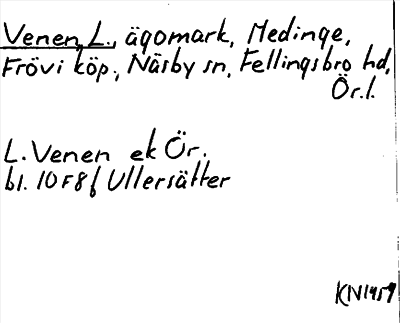 Venen, L., ägomark, Medinge,
Frövi köp., Näsby sn, Fellingsbro hd,
Ör.l.
L. Venen ek Ör.
bl. 10F8f Ullersätter
KN1959